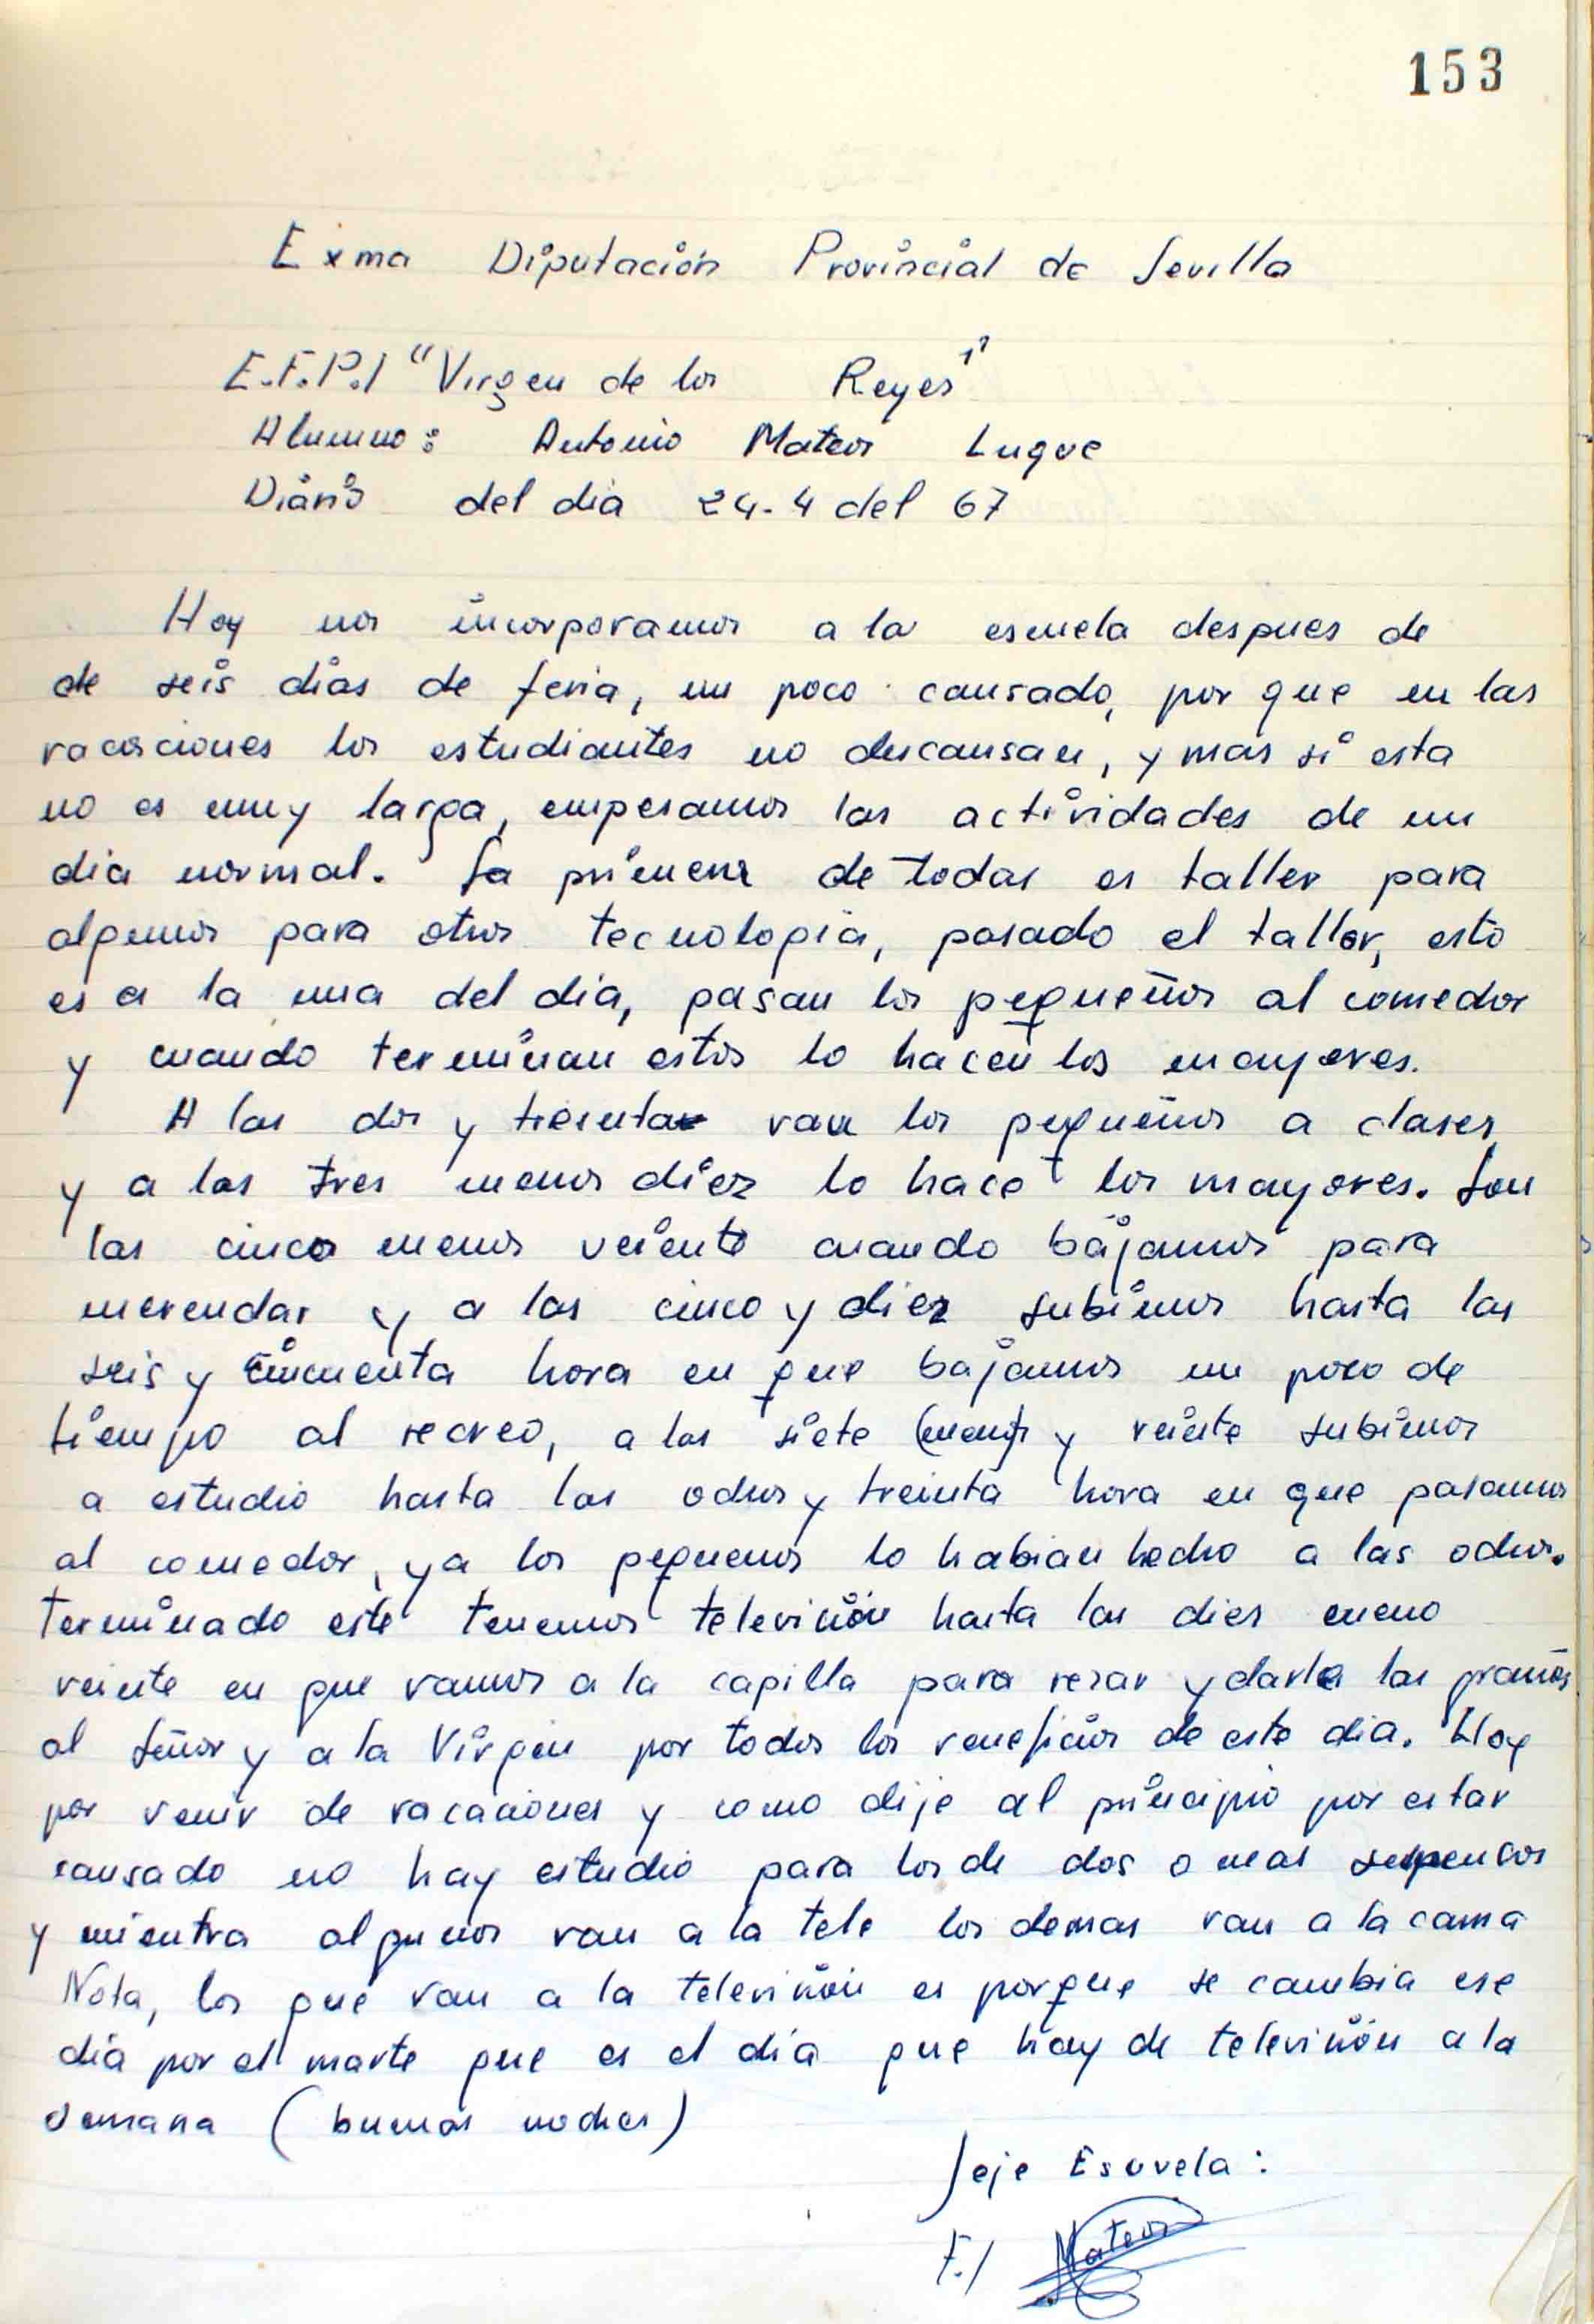 153
Exma Diputación Provincial de Sevilla
E.F.P.I "Virgen de los Reyes"
Alumno: Antonio Mateos Luque
Diario del dia 24-4 del 67
Hoy nos incorporamos a la escuela despues de
de seis días de feria, un poco cansado, por que en las
vacaciones los estudiantes no descansan, y mas si esta
no es muy larga, empesamos las actividades de un
dia normal. La primera de todas es taller para
algunos para otros tecnología, pasado el taller, esto
es a la una del día, pasan los pequeños al comedor
y cuando terminan estos lo hacen los mayores.
A las dos y treinta van los pequeños a clases
y a las tres menos diez lo hace los mayores. Son
las cinco menos veinte cuando bajamos para
merendar y a las cinco y diez subimos hasta las
seis y cincuenta hora en que bajamos un poco de
tiempo al recreo, a las siete (menos) y veinte subimos
a estudio hasta las ochos y treinta hora en que pasamos
al comedor, ya los pequenos lo habian hecho a las ochos.
Terminado este tenemos televisión hasta las dies meno
veinte en que vamos a la capilla para rezar y darle las gracias
al Señor y a la Virgen por todos los veneficios de este dia. Hoy
por venir de vacaciones y como dije al principio por estar
cansado no hay estudio para los de dos o mas suspensos
y mientra algunos van a la tele los demas van a la cama
Nota, los que van a la televisión es porque se cambia ese
día por el marte que es el día que hay de televisión a la
semana (buenas noches)
Jeje Escuela:
F./ Mateos